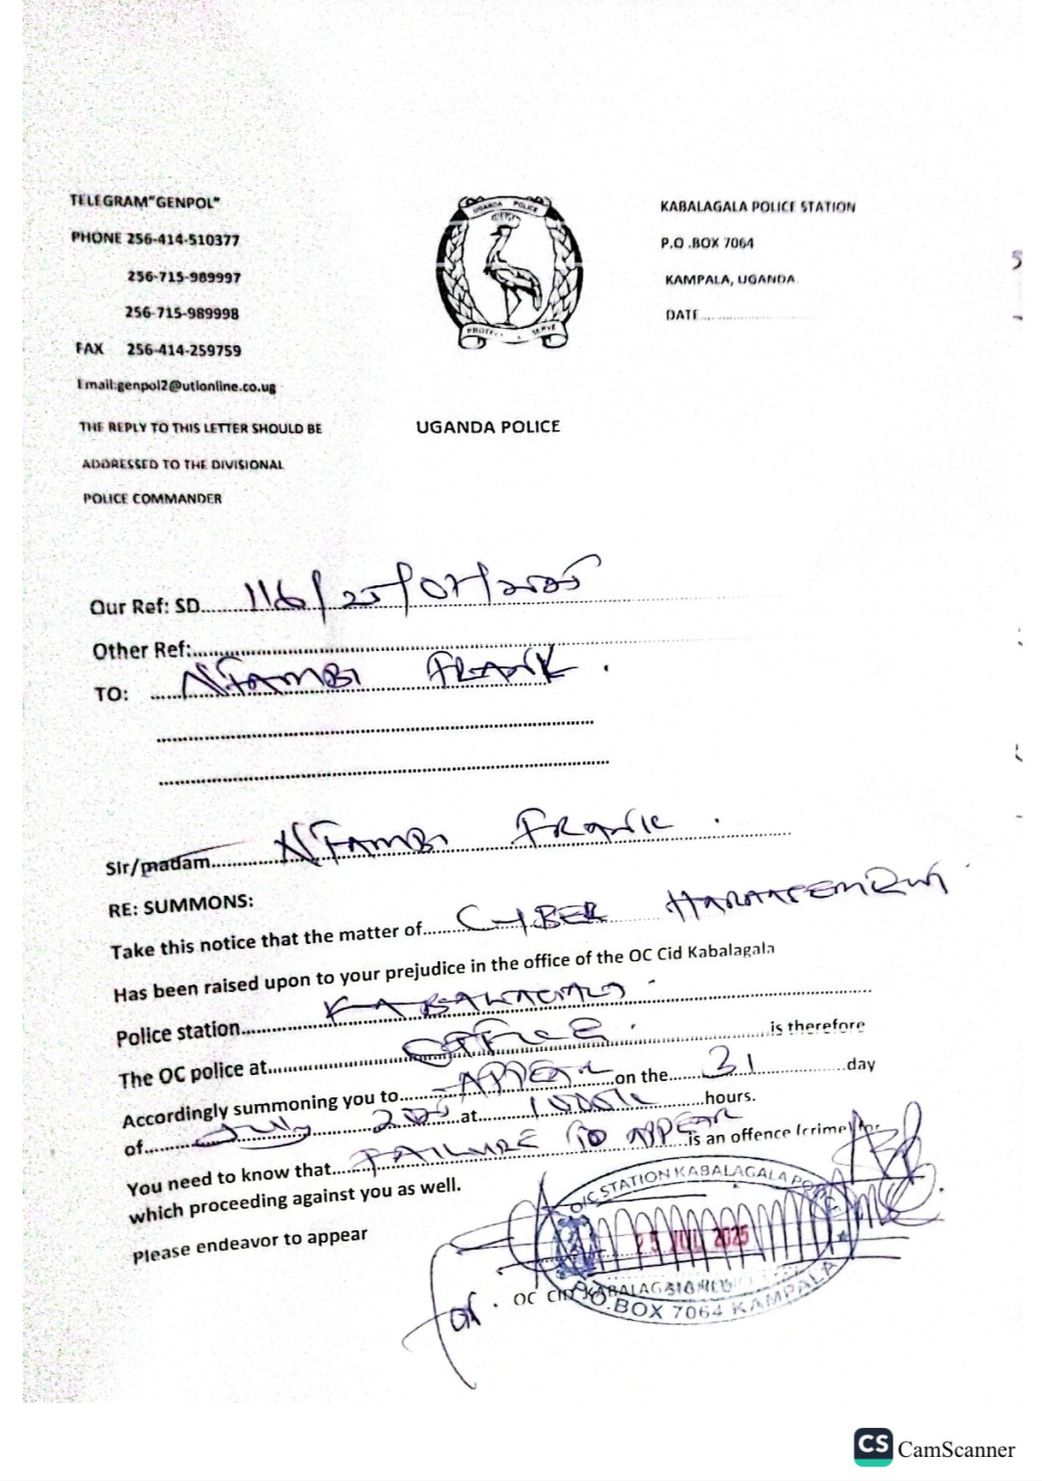 TELEGRAM"GENPOL"
PHONE 256-414-510377
256-715-989997
256-715-989998
FAX 256-414-259759
Email:genpol2@utlonline.co.ug
THE REPLY TO THIS LETTER SHOULD BE
ADDRESSED TO THE DIVISIONAL
POLICE COMMANDER
UGANDA POLICE
PROTECT & SERVE
KABALAGALA POLICE STATION
P.O .BOX 7064
KAMPALA, UGANDA
DATE
UGANDA POLICE
Our Ref: SD 116/25/07/2025
Other Ref:
TO: NTAMBI FRANK.
Sir/madam NTAMBI FRANK.
RE: SUMMONS:
Take this notice that the matter of CYBER
Has been raised upon to your prejudice in the office of the OC Cid Kabalagala
Police station KABALAGALA
The OC police at OFFICE is therefore
Accordingly summoning you to APPEAR on the 31 day
of July 2025 at hours.
You need to know that FAILURE TO APPEAR is an offence (crime) for
which proceeding against you as well.
Please endeavor to appear
O/C STATION KABALAGALA POLICE
25 JUL 2025
P.O.BOX 7064 KAMPALA
for. OC CID KABALAGALA
CS CamScanner